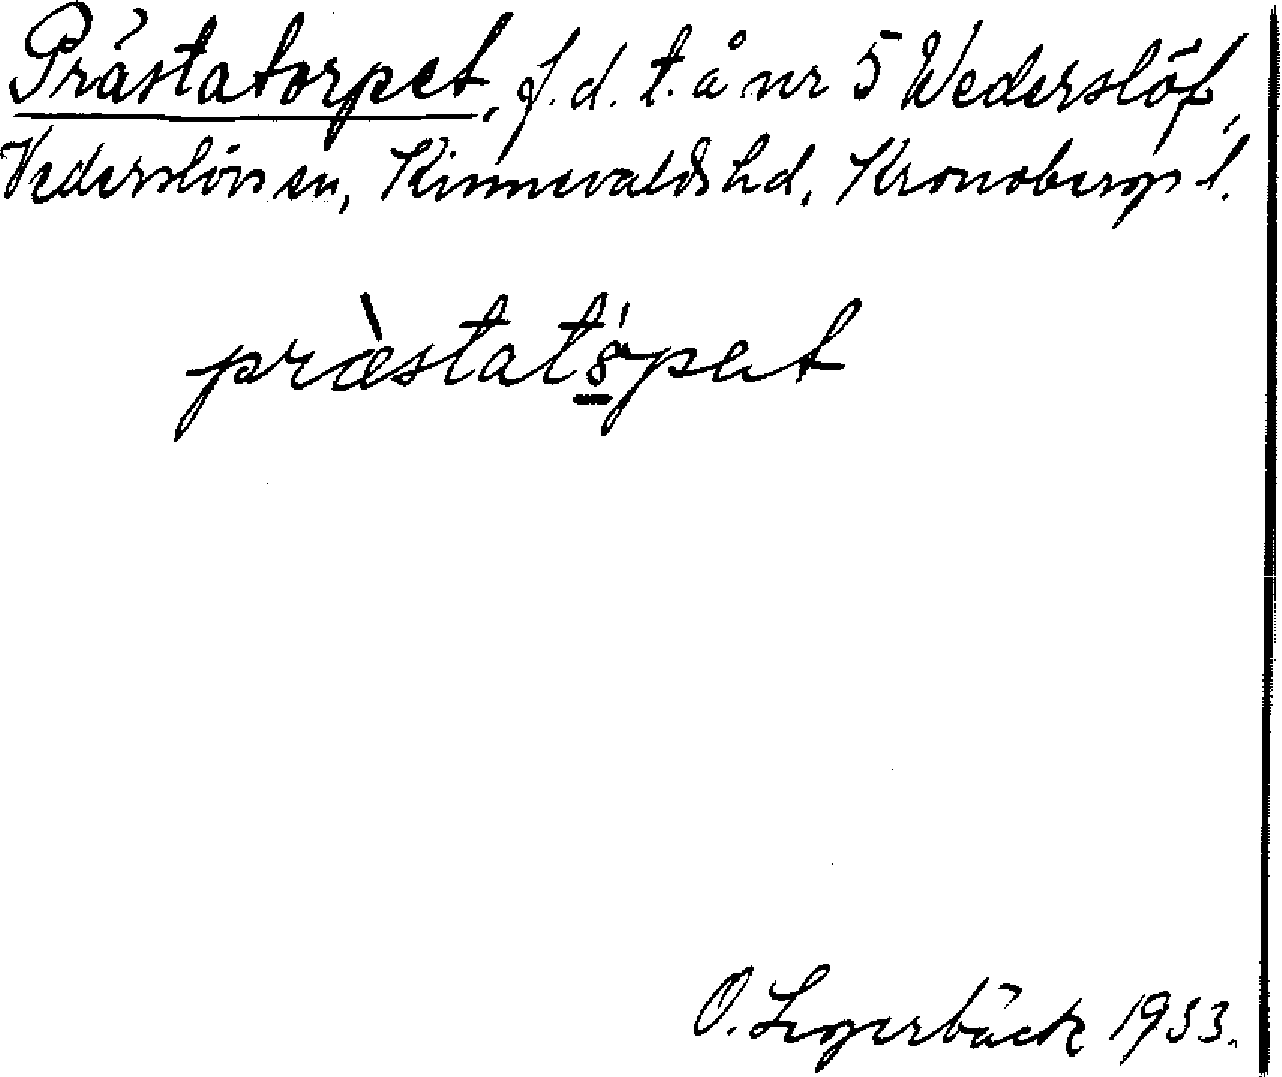 Prästatorpet, f.d. t. å nr 5 Wederslöf,
Vederslövs sn, Kinnevalds hd, Kronobergs l.
præ̀stató̱pet
O. Legerbäck 1933.